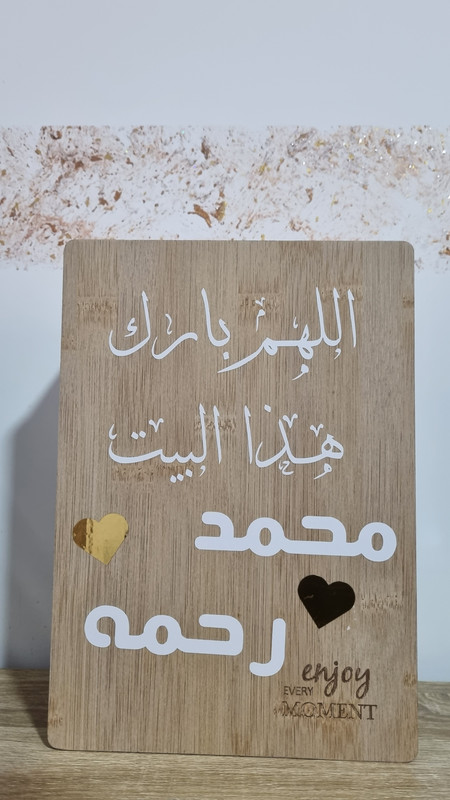 اللهم بارك
هذا البيت
محمد
رحمه
enjoy
EVERY
MOMENT